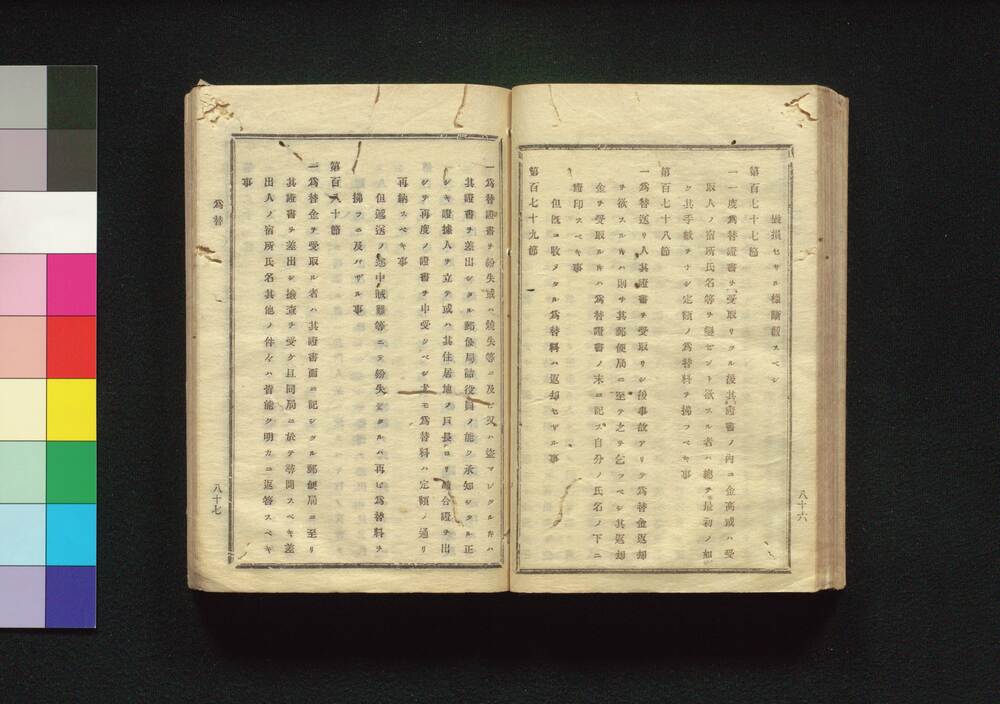 毀損セサル樣斷截スベシ
第百七十七節
一一度爲替證書ヲ受取リタル後其證書ノ内ニ金高或ハ受
取人ノ宿所氏名等ヲ變ゼント欲スル者ハ總テ最初ノ如
ク其手數ヲナシ定額ノ爲替料ヲ拂フベキ事
第百七十八節
一爲替送リ人其證書ヲ受取リシ後事故アリテ爲替金返却
ヲ欲スルキハ則チ其郵便局ニ至テ之ヲ乞フベシ其返却
金ヲ受取ルキハ爲替證書ノ末ニ記ス自分ノ氏名ノ下ニ
證印スベキ事
但既ニ收メタル爲替料ハ返却セザル事
第百七十九節
八十六
一爲替證書ヲ紛失或ハ燒失等ニ及ビ又ハ盜マレタルキハ
其證書ヲ差出シタル郵便局諸役員ノ能ク承知シタル正
シキ證據人ヲ立テ或ハ其住居地ノ戸長ヨリ請合證ヲ出
シテ再度ノ證書ヲ申受クベシ尤モ爲替料ハ定額ノ通リ
再納スベキ事
但遞送ノ途中賊難等ニテ紛失シタルハ再ビ爲替料ヲ
拂フニ及バザル事
第百八十節
一爲替金ヲ受取ル者ハ其證書面ニ記シタル郵便局ニ至リ
其證書ヲ差出シ撿査ヲ受ケ且同局ニ於テ尋問スベキ差
出人ノ宿所氏名其他ノ件々ハ皆能ク明カニ返答スベキ
事
爲替
八十七